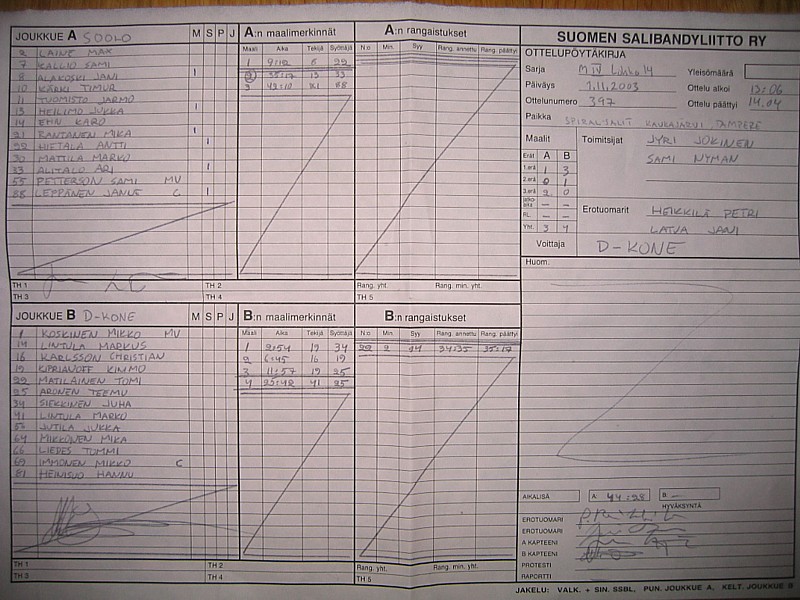 JOUKKUE A SOOLO M S P J
2 LAINE MAX
7 KALLIO SAMI
8 ALAKOSKI JANI I
10 KÄRKI TIMUR
11 TUOMISTO JARMO
13 HEILIMO JUKKA I
14 EHN KARO
21 RANTANEN MIKA I
22 HIETALA ANTTI I
30 MATTILA MARKO
33 ALITALO ARI I
55 PETTERSON SAMI MV
88 LEPPÄNEN JANNE C I
TH 1 TH 2
TH 3 TH 4
A:n maalimerkinnät
Maali Aika Tekijä Syöttäjä
1 9:12 8 22
2 35:17 13 33
3 43:10 21 88
A:n rangaistukset
N:o Min. Syy Rang. annettu Rang. päättyi
Rang. yht. Rang. min. yht.
TH 5
JOUKKUE B D-KONE M S P J
1 KOSKINEN MIKKO MV
14 LINTULA MARKUS
16 KARLSSON CHRISTIAN
19 KIPRIANOFF KIMMO
22 MATILAINEN TOMI
25 ARONEN TEEMU
34 SIEKKINEN JUHA
41 LINTULA MARKO
53 JUTILA JUKKA
64 MIKKONEN MIKA
66 LIEDES TOMMI
69 IMMONEN MIKKO C
81 HEINISUO HANNU
TH 1 TH 2
TH 3 TH 4
B:n maalimerkinnät
Maali Aika Tekijä Syöttäjä
1 2:54 19 34
2 6:45 16 19
3 11:57 19 25
4 25:42 41 25
B:n rangaistukset
N:o Min. Syy Rang. annettu Rang. päättyi
22 2 34:35 35:17
Rang. yht. Rang. min. yht.
TH 5
SUOMEN SALIBANDYLIITTO RY
OTTELUPÖYTÄKIRJA
Sarja M IV Lohko 14 Yleisömäärä
Päiväys 1.11.2003 Ottelu alkoi 13:06
Ottelunumero 397 Ottelu päättyi 14.04
Paikka SPIRAL-SALIT KAUKAJÄRVI TAMPERE
Maalit Toimitsijat JYRI JOKINEN
SAMI NYMAN
Erät A B
1.erä 1 3
2.erä 0 1
3.erä 2 0
Jatkoaika – –
RL – –
Yht. 3 4
Erotuomarit HEIKKILÄ PETRI
LATJA JANI
Voittaja D-KONE
Huom.
AIKALISÄ A 44:28 B –
HYVÄKSYNTÄ
EROTUOMARI
EROTUOMARI
A KAPTEENI
B KAPTEENI
PROTESTI
RAPORTTI
JAKELU: VALK. + SIN. SSBL, PUN. JOUKKUE A, KELT. JOUKKUE B